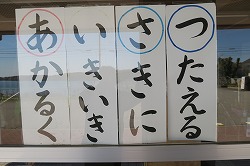 つたえる
さきに
いきいき
あかるく